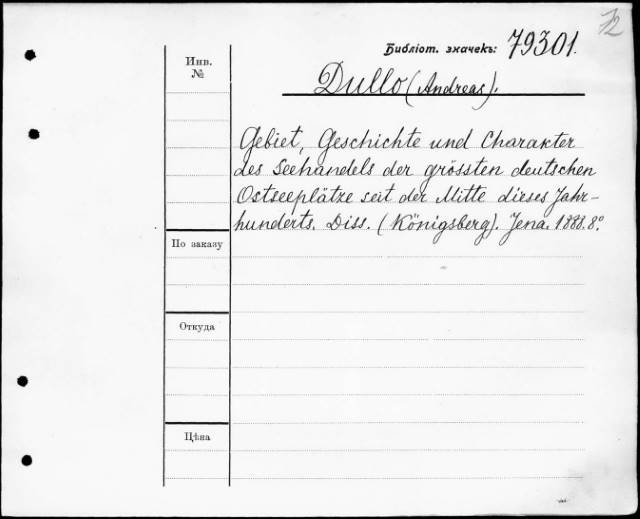 72
Библіот. значекъ: 79301.
Инв.
№
Dullo (Andreas).
Gebiet, Geschichte und Charakter
des Seehandels der grössten deutschen
Ostseeplätze seit der Mitte dieses Jahr-
hunderts. Diss. (Königsberg). Jena. 1888. 8°.
По заказу
Откуда
Цѣна